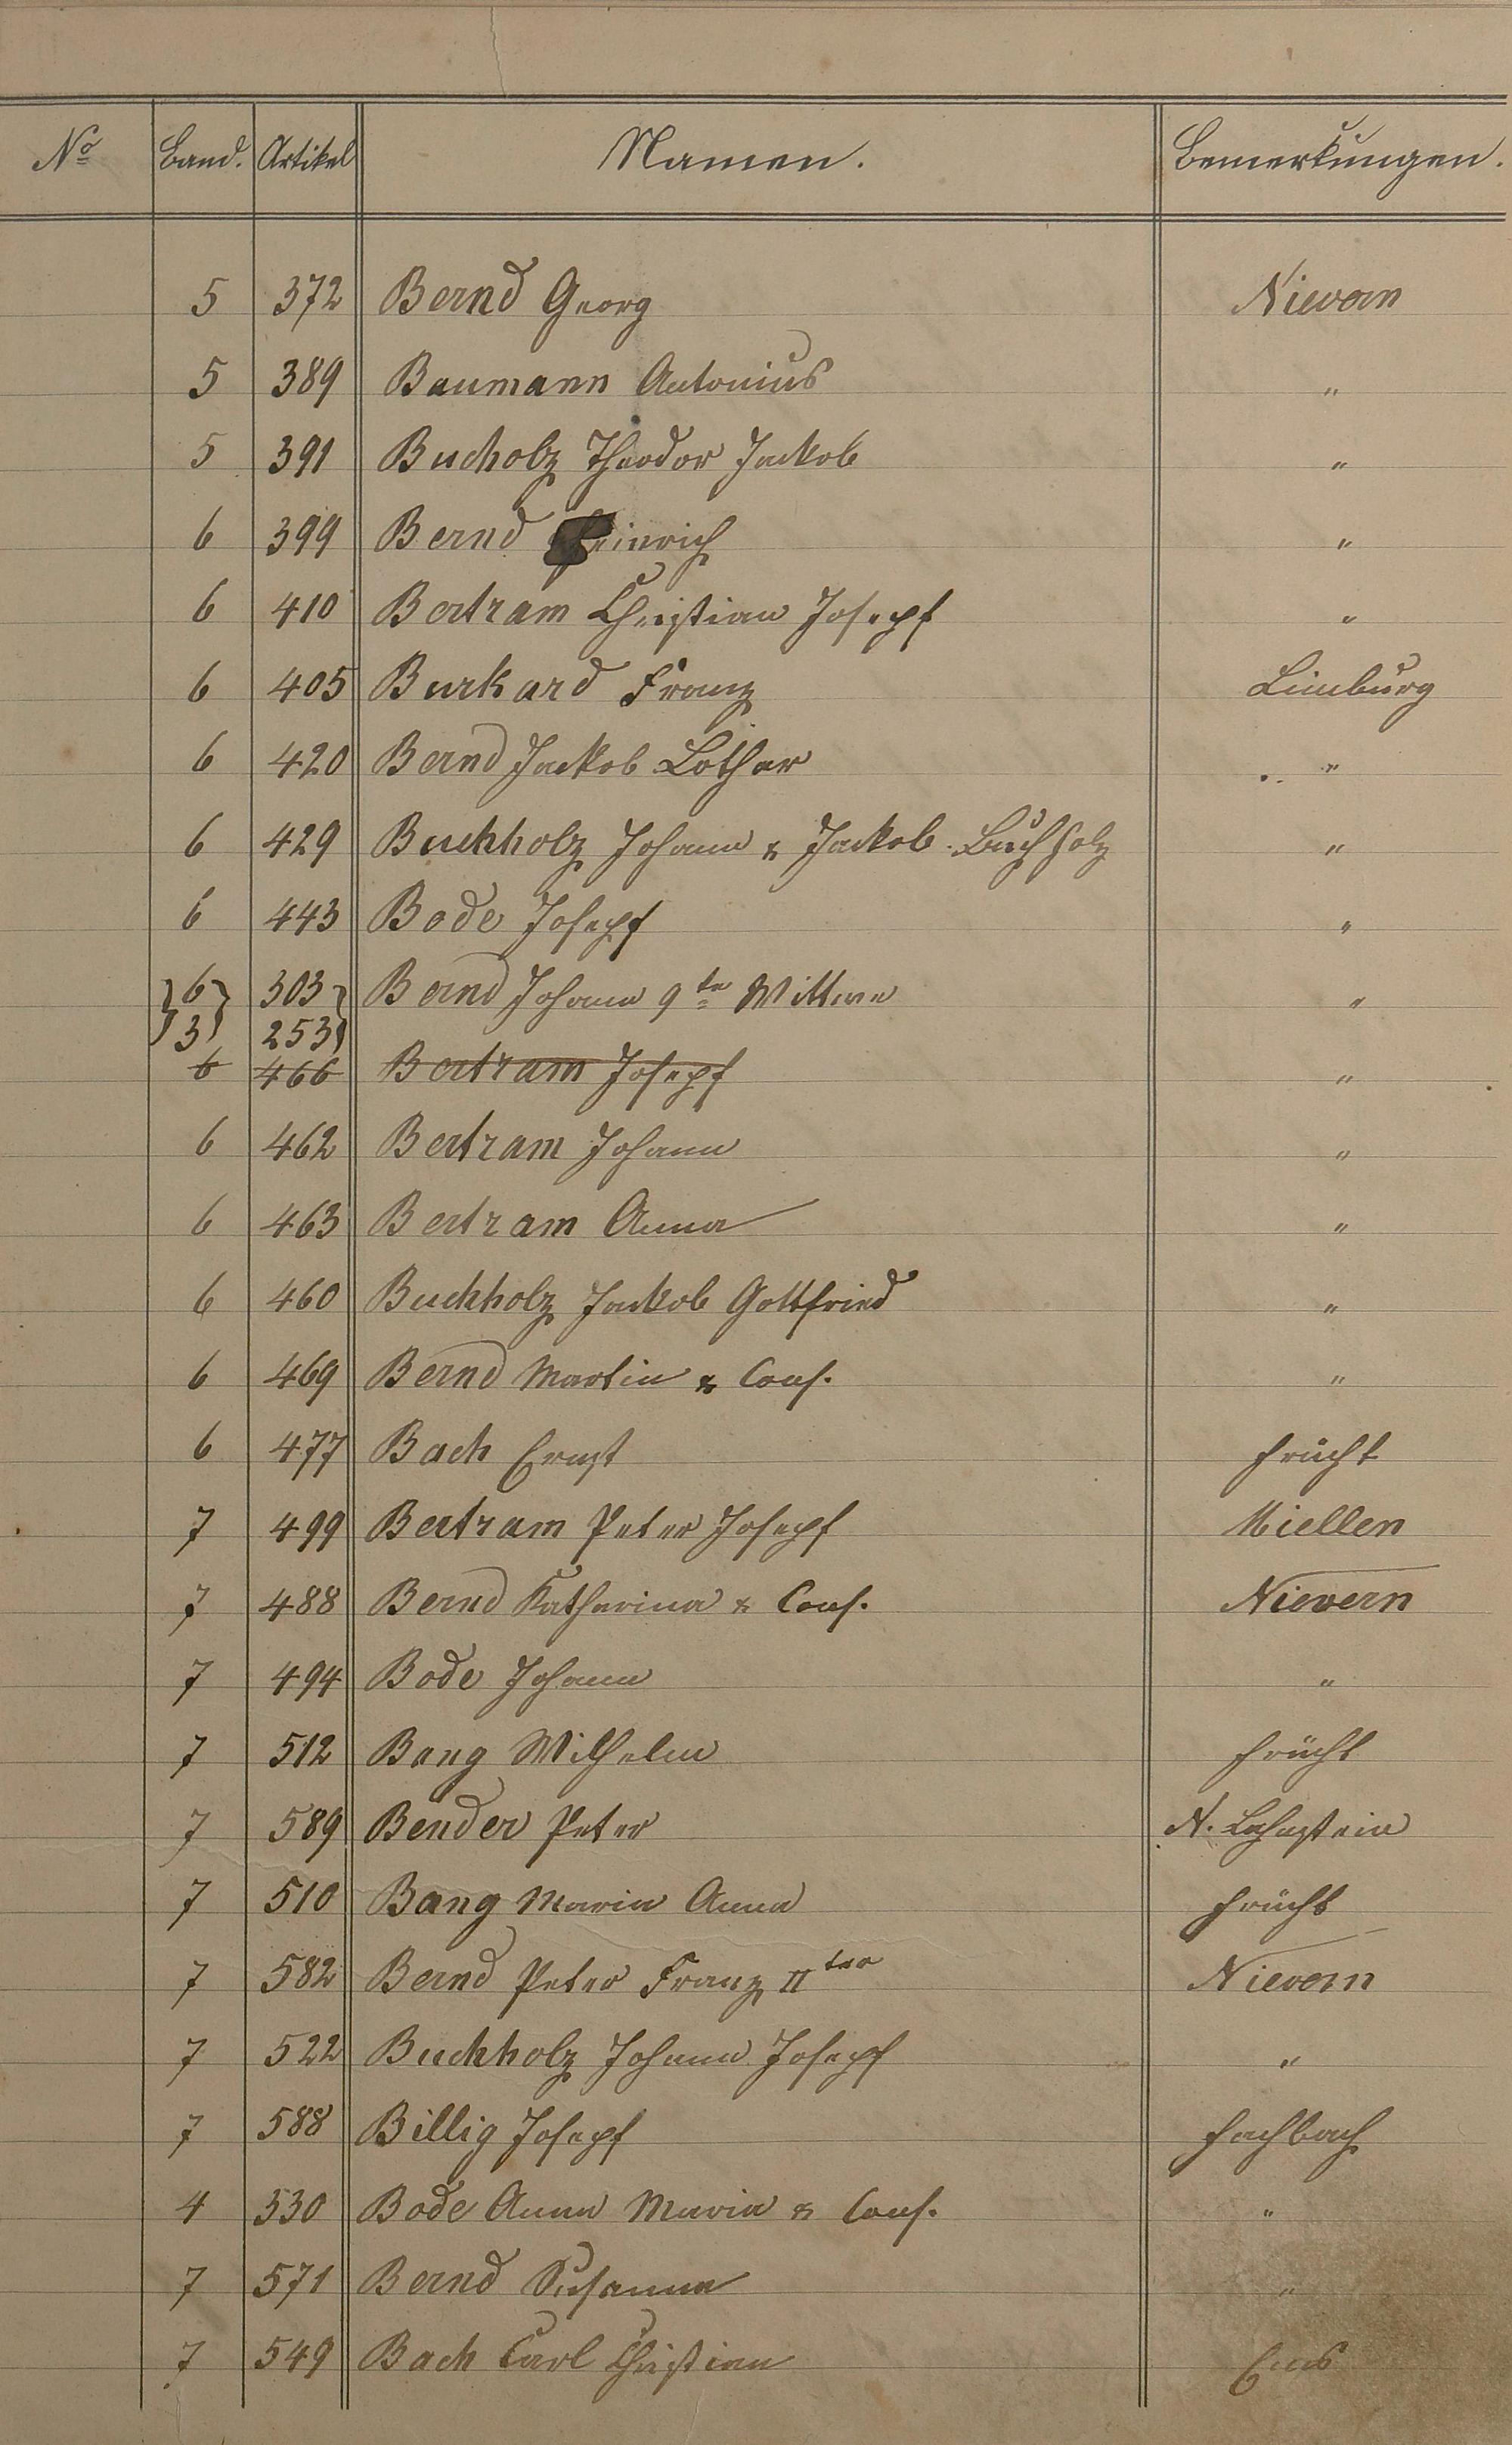 No Band. Artikel Namen. Bemerkungen.
5 372 Bernd Georg Nievern
5 389 Baumann Antonius "
5 391 Bucholz Theodor Jackob "
6 399 Bernd Heinrich "
6 410 Bertram Christian Josepf "
6 405 Burkard Franz Limburg
6 420 Bernd Jackob Lothar "
6 429 Buchholz Johann & Jackob Buchholz "
6 443 Bode Josepf "
6 303 Bernd Johann 9te Wittwe "
3 253
6 466 Bertram Josepf "
6 462 Bertram Johann "
6 463 Bertram Anna "
6 460 Buchholz Jackob Gottfried "
6 469 Bernd Martin & Cons. "
6 477 Bach Ernst Frücht
7 499 Bertram Peter Josepf Miellen
7 488 Bernd Katharina & Cons. Nievern
7 494 Bode Johann "
7 512 Bang Wilhelm Frücht
7 589 Bender Peter N. Lahnstein
7 510 Bang Maria Anna Frücht
7 582 Bernd Peter Franz IIter Nievern
7 522 Buchholz Johann Josepf "
7 588 Billig Josepf Fachbach
4 330 Bode Anna Maria & Cons. "
7 571 Bernd Susanna "
7 549 Bach Carl Christian Ems